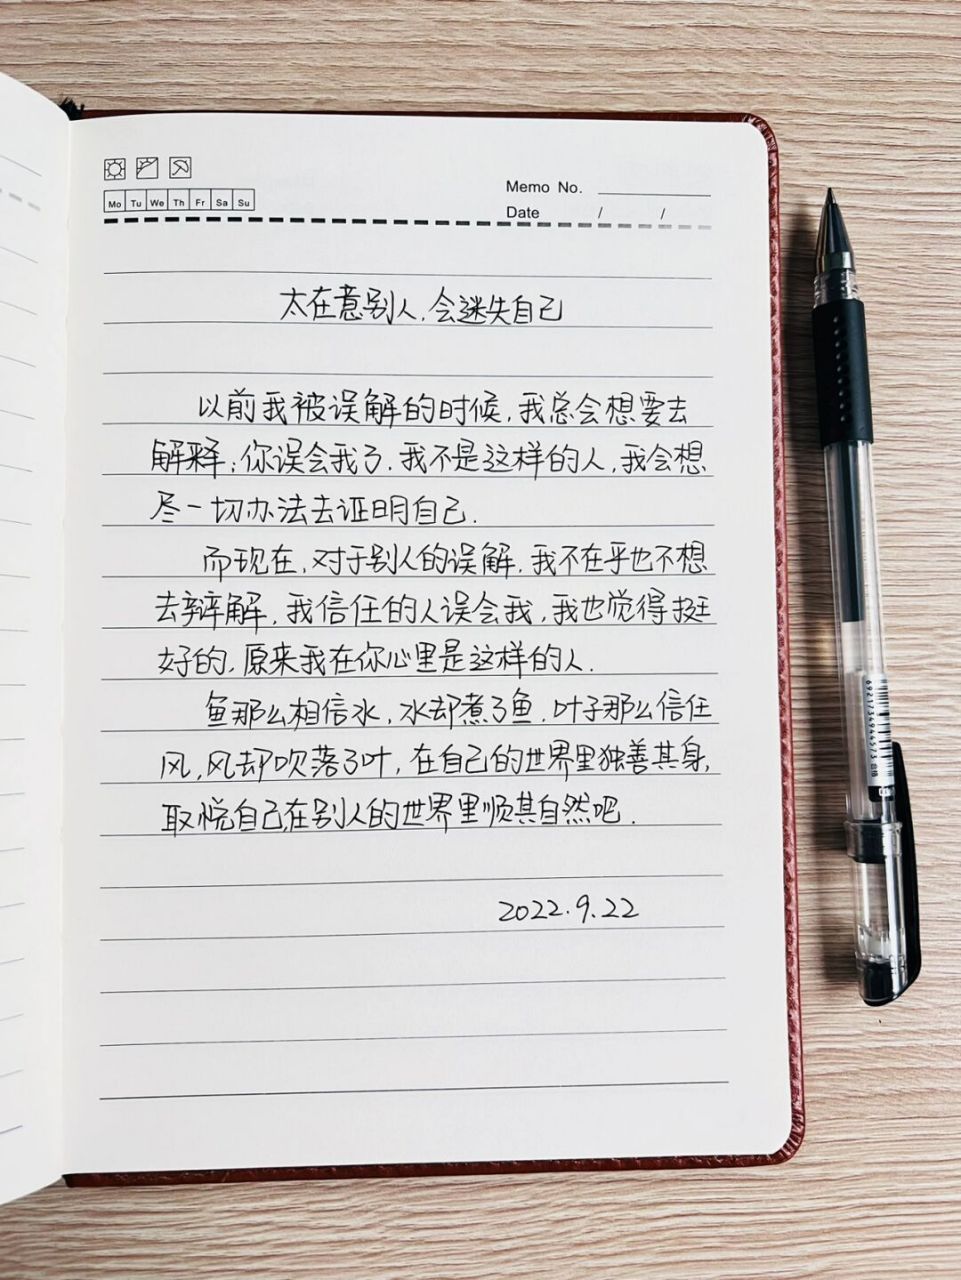 Mo Tu We Th Fr Sa Su
Memo No.
Date / /
太在意别人,会迷失自己
以前我被误解的时候,我总会想要去
解释;你误会我了.我不是这样的人,我会想
尽一切办法去证明自己.
而现在,对于别人的误解,我不在乎也不想
去辩解,我信任的人误会我,我也觉得挺
好的.原来我在你心里是这样的人.
鱼那么相信水,水却煮了鱼.叶子那么信任
风,风却吹落了叶,在自己的世界里独善其身,
取悦自己在别人的世界里顺其自然吧.
2022.9.22
6921734944573